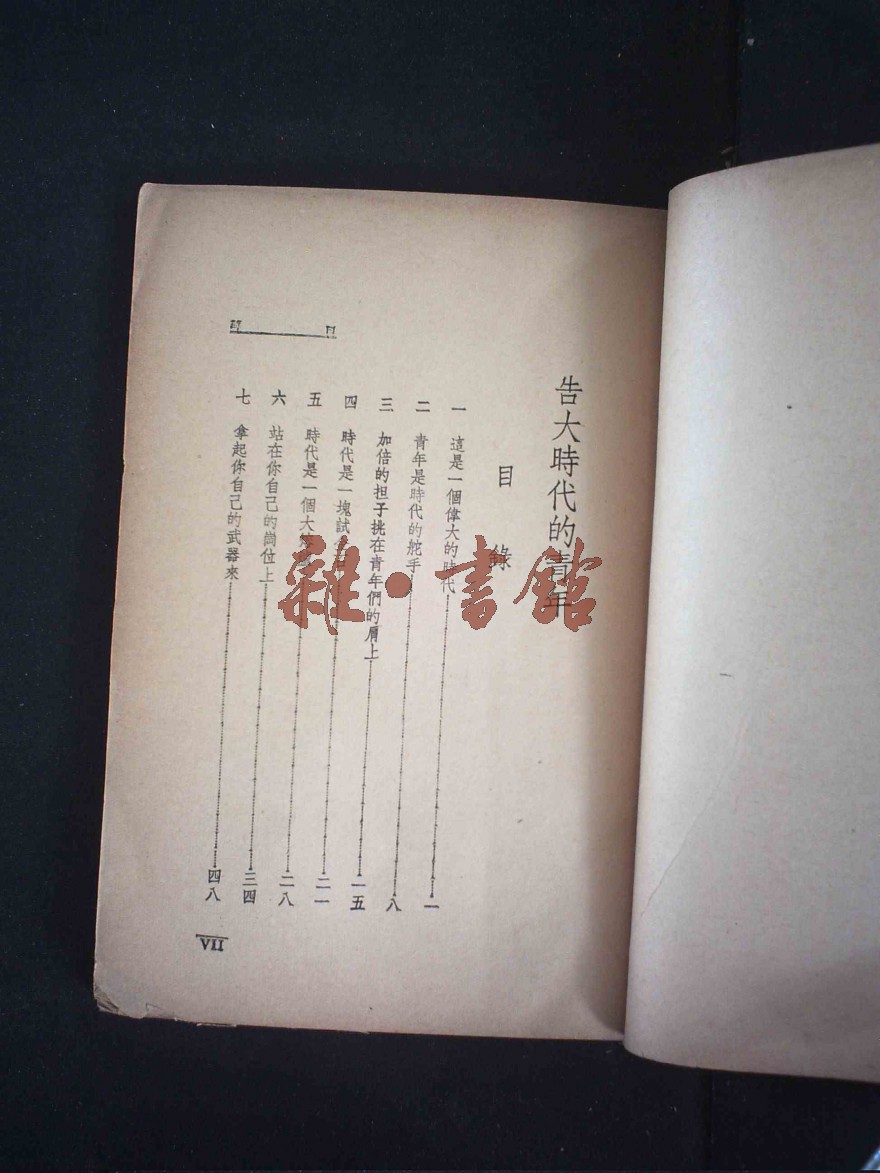 告大時代的青年
目錄
一 這是一個偉大的時代 一
二 青年是時代的舵手 八
三 加倍的担子挑在青年們的肩上 一五
四 時代是一塊試 二一
五 時代是一個大 二八
六 站在你自己的崗位上 三四
七 拿起你自己的武器來 四八
目
VII
雜·書館